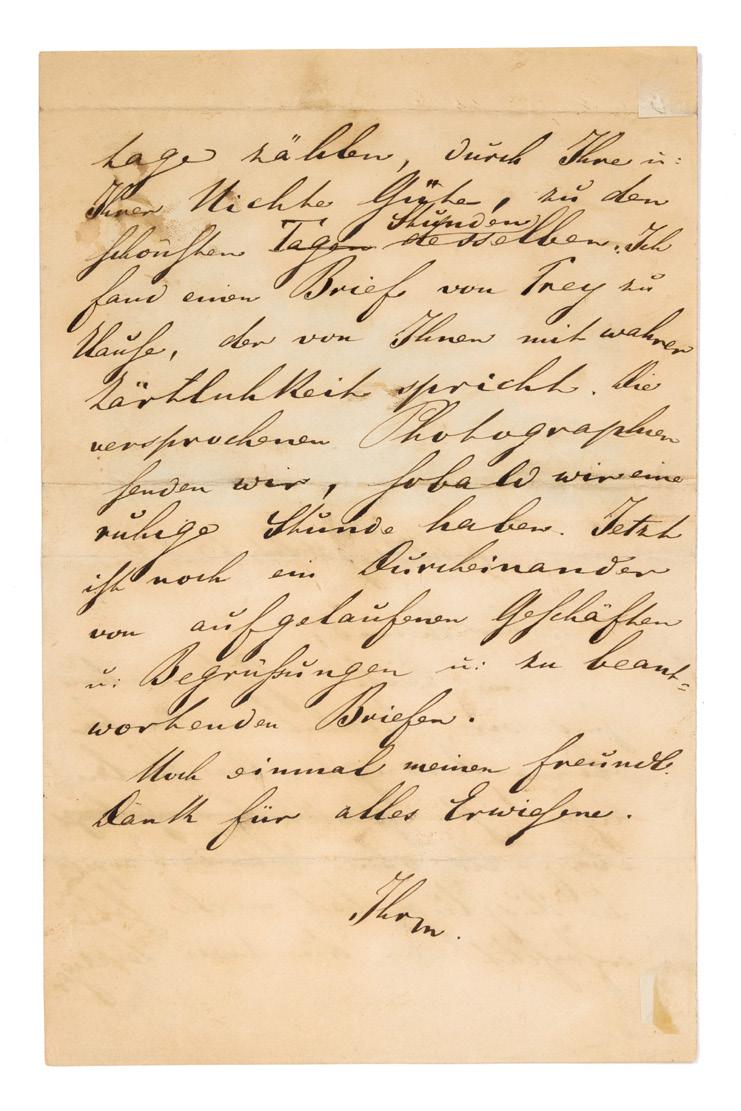 tage zählen, durch Ihre u:
Ihrer Nichte Güte, zu den
Stunden
schönsten Tagen desselben. Ich
fand einen Brief von Frey zu
Hause, der von Ihnen mit wahrer
Zärtlichkeit spricht. Die
versprochenen Photographien
senden wir, sobald wir eine
ruhige Stunde haben. Jetzt
ist noch ein Durcheinander
von aufgelaufenen Geschäften
u: Begrüßungen u: zu beant=
wortenden Briefen.
Noch einmal meinen freundl.
Dank für alles Erwiesene.